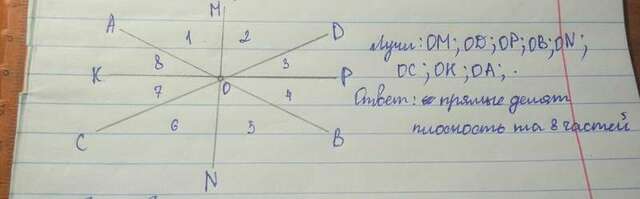 M
A
1
2
D
K
8
3
P
7
O
4
C
6
5
B
N
Лучи: OM; OD; OP; OB; ON;
OC; OK; OA;.
Ответ: прямые делят
плоскость на 8 частей